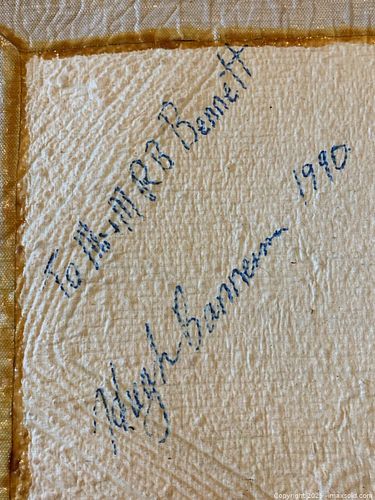 To Mr + MRS B Bennett
Hugh Bannerman 1990.
Copyright 2025 - maxsold.com